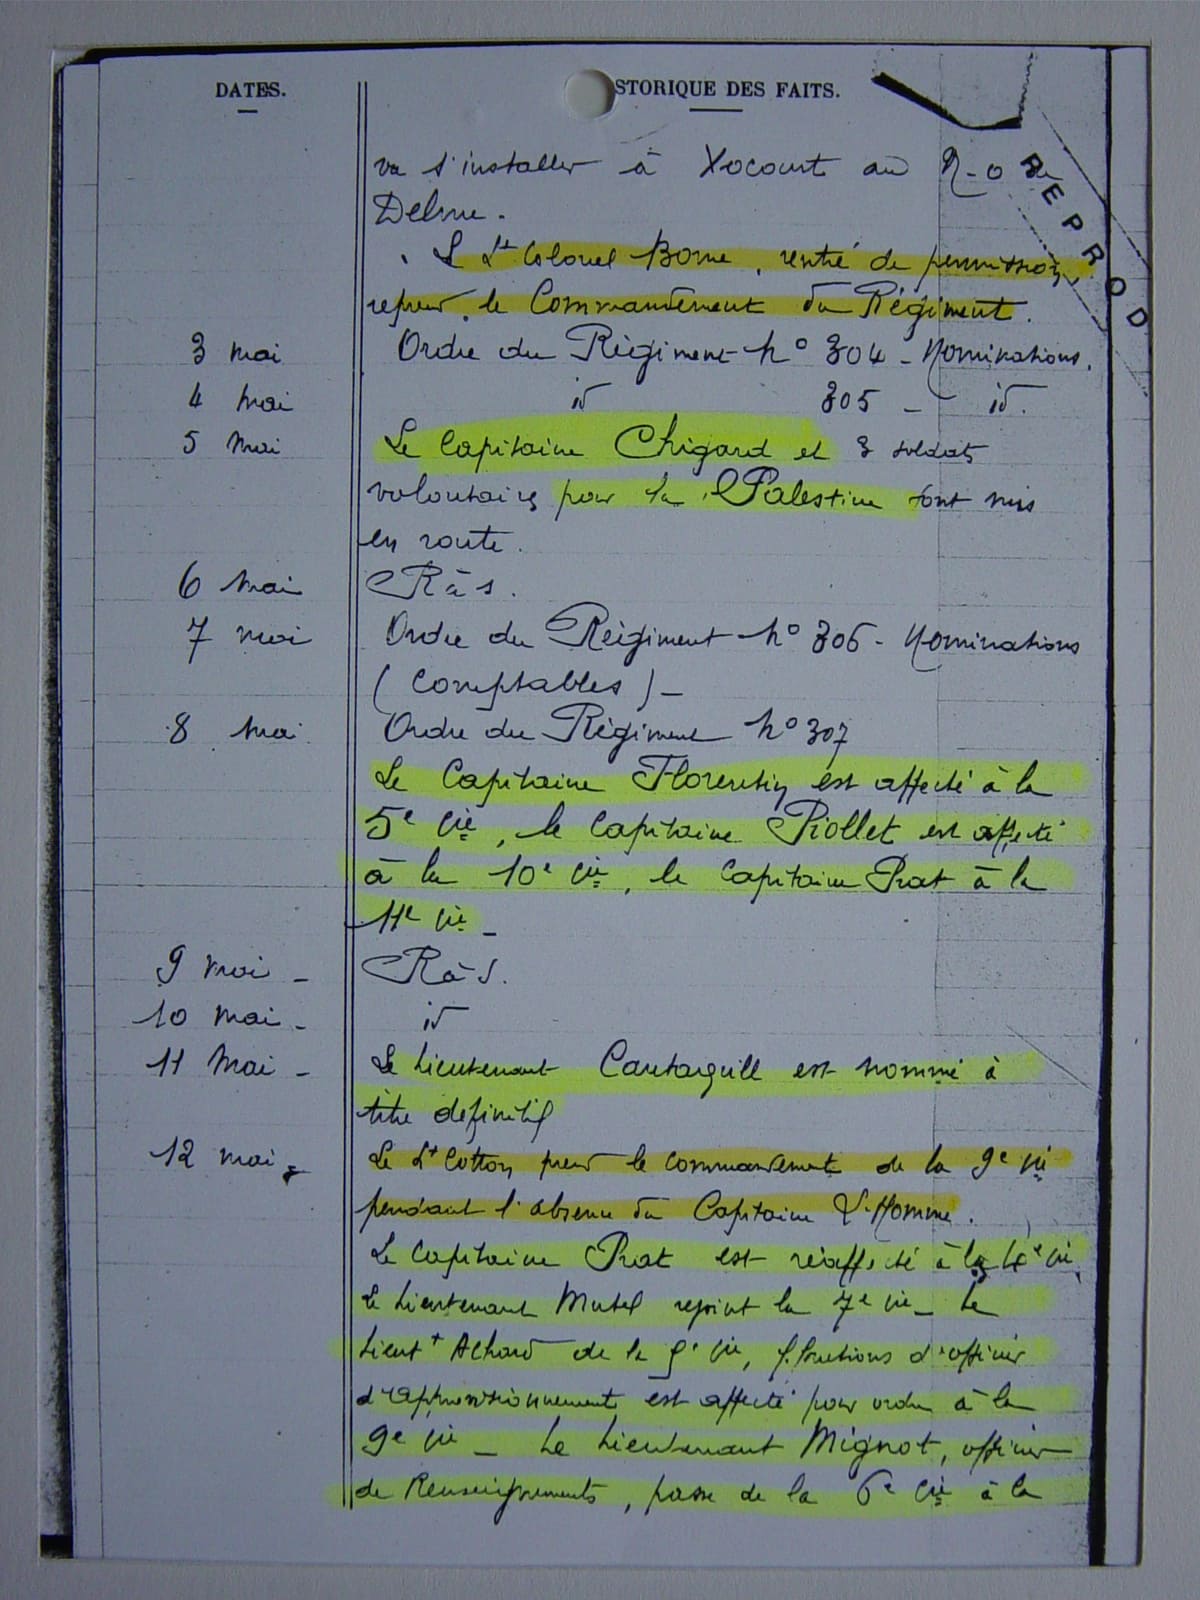 DATES.
STORIQUE DES FAITS.
REPROD
va s'installer à Xocourt au N-O de
Delme.
Le Lt Colonel Borne, rentré de permission,
reprend le Commandement du Régiment.
3 mai Ordre du Régiment No 304 - Nominations.
4 mai id 305 - id.
5 mai Le Capitaine Chigard et 3 soldats
volontaires pour la Palestine sont mis
en route.
6 mai Ràs.
7 mai Ordre du Régiment No 306 - Nominations
(Comptables) -
8 mai Ordre du Régiment No 307
Le Capitaine Florentin est affecté à la
5e Cie, le Capitaine Piollet est affecté
à la 10e Cie, le Capitaine Prat à la
11e Cie -
9 mai - RàS.
10 mai - id
11 Mai - Le Lieutenant est nommé à
titre définitif
12 mai - Le Lt Cotton prend le commandement de la 9e Cie
pendant l'absence du Capitaine L'Homme.
Le Capitaine Prat est réaffecté à la Cie.
Le Lieutenant Mutel rejoint la 7e Cie - Le
Lieutt Achard de la Cie, f. fonctions d'officier
d'approvisionnements est affecté pour ordre à la
9e Cie - Le Lieutenant Mignot, officier
de Renseignements, passe de la 6e Cie à la